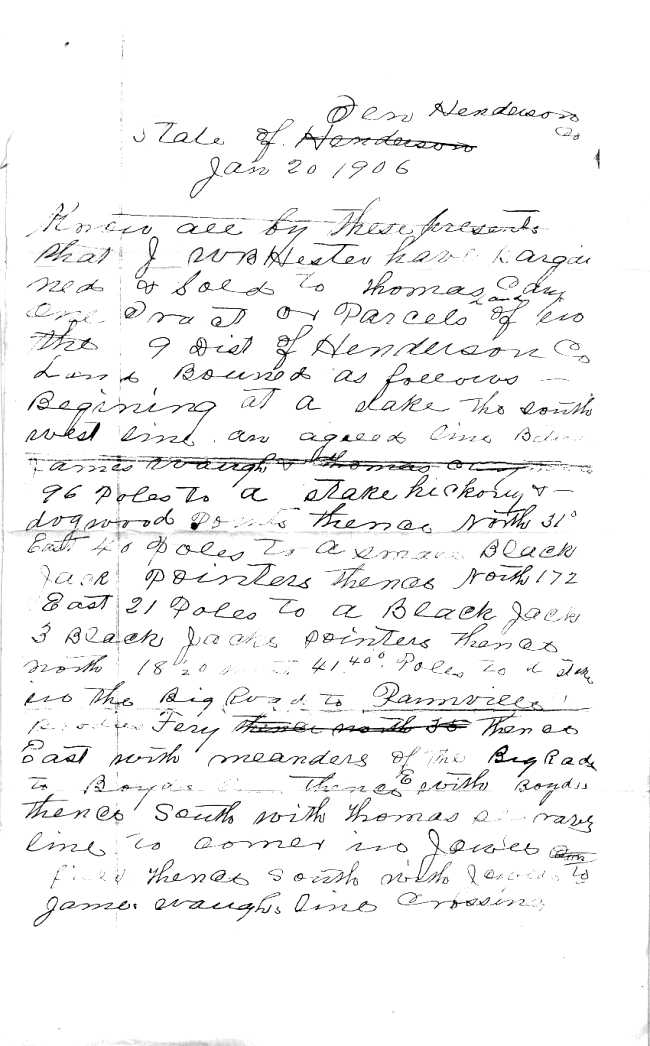 Ten Henderson
State of Henderson Co
Jan 20 1906
Know all by these presents
that I W B Hester have Bargai
ned & Sold to Thomas
One Tract or Parcels Land of in
the 9 Dist of Henderson Co
Land Bouned as follows —
Begining at a stake the south
west line an agreed line
James Waugh & Thomas
96 Poles to a stake hickory & —
dogwood Points thence North 31°
East 40 Poles to a small Black
Jack Pointers thence North 172
East 21 Poles to a Black Jack
3 Black Jacks pointers thence
north 18 20 41 40° Poles to a stake
in the Big Road to
Fery thence north 35 thence
East with meanders of the Big Rade
to thence E with Boyds
thence South with Thomas
line to corner in Jowes
thence South with to
James Waughs line Crossing